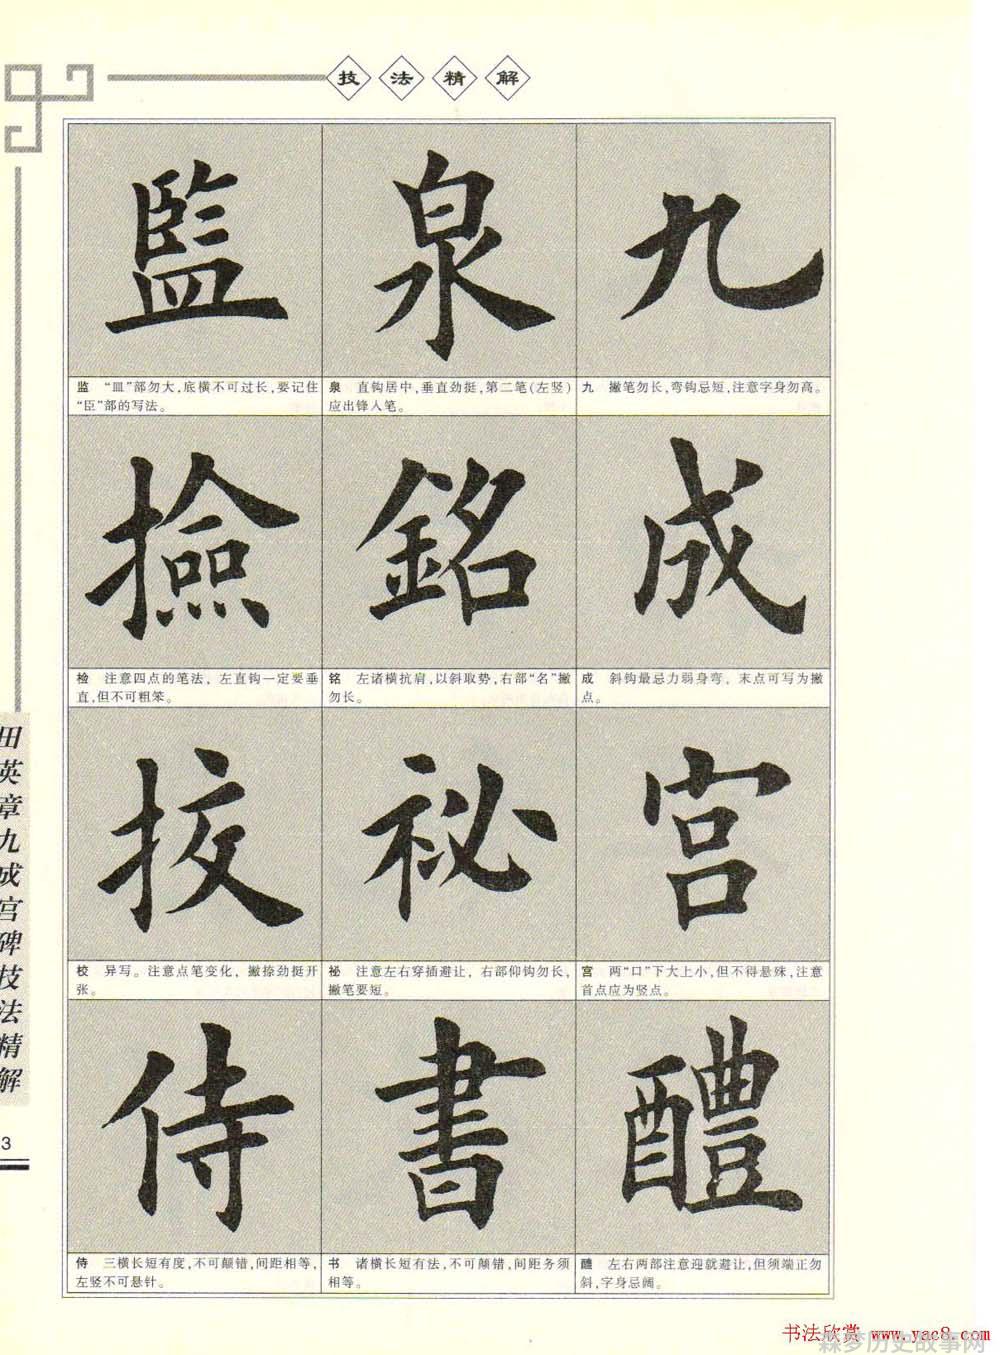 技法精解
九
九 撇笔勿长,弯钩忌短,注意字身勿高。
成
成 斜钩最忌力弱身弯,末点可写为撇
点。
宫
宫 两“口”下大上小,但不得悬殊,注意
首点应为竖点。
醴
醴 左右两部注意迎就避让,但须端正勿
斜,字身忌阔。
泉
泉 直钩居中,垂直劲挺,第二笔(左竖)
应出锋入笔。
銘
铭 左诸横抗肩,以斜取势,右部“名”撇
勿长。
祕
祕 注意左右穿插避让,右部仰钩勿长,
撇笔要短。
書
书 诸横长短有法,不可颠错,间距务须
相等。
監
监 “皿”部勿大,底横不可过长,要记住
“臣”部的写法。
撿
检 注意四点的笔法,左直钩一定要垂
直,但不可粗笨。
挍
校 异写。注意点笔变化,撇捺劲挺开
张。
侍
侍 三横长短有度,不可颠错,间距相等,
左竖不可悬针。
田英章九成宫碑技法精解
3
书法欣赏 www.yac8.com
霖梦历史故事网